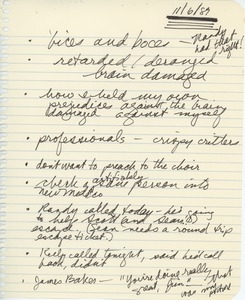 11/6/89
• vices and voces — Randy
had that
right!
• retarded/deranged
brain damaged
• how I held my own
prejudices against the brain
damaged against myself
• professionals - crispy critters
• don't want to preach to the choir
• artfully
person into
new
• Randy called today - he's going
to help Scott and Jean
escape (Jean needs a round trip
escape ticket.)
• called tonight, said he'd call
back, didn't
• James Baker - "You're doing really
great, Jim" - that
was